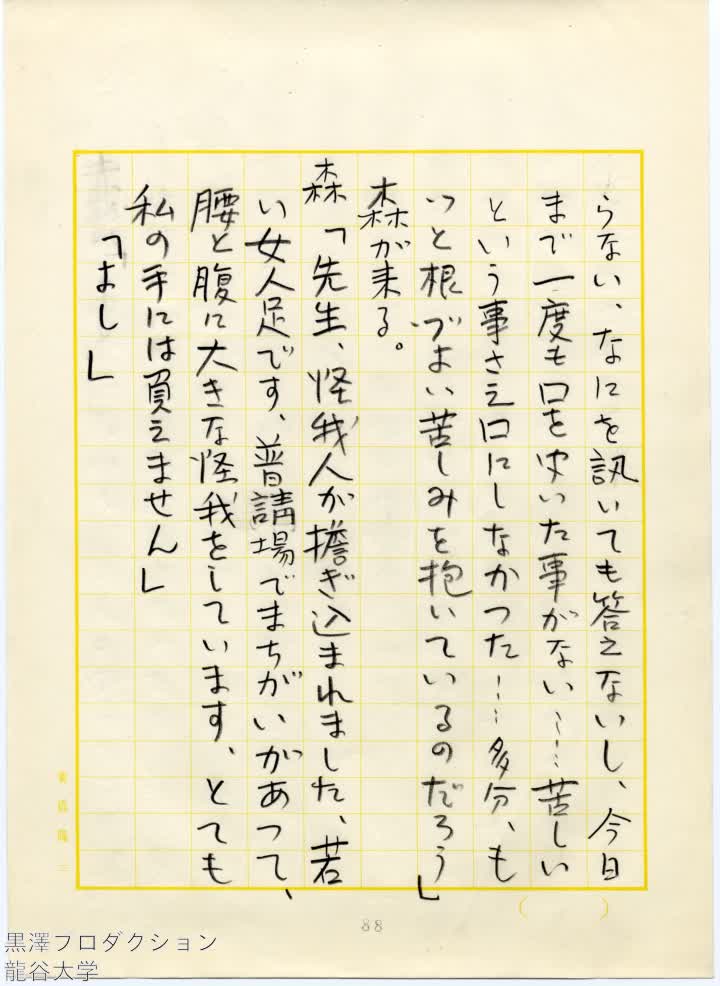 らない、なにを訊いても答えないし、今日
まで一度も口を史いた事がない……苦しい
という事さえ口にしなかつた……多分、も
つと根づよい苦しみを抱いているのだろう」
森が来る。
森「先生、怪我人が擔ぎ込まれました、若
い女人足です、普請場でまちがいがあつて、
腰と腹に大きな怪我をしています、とても
私の手には負えません」
「よし」
88
黒澤プロダクション
龍谷大学